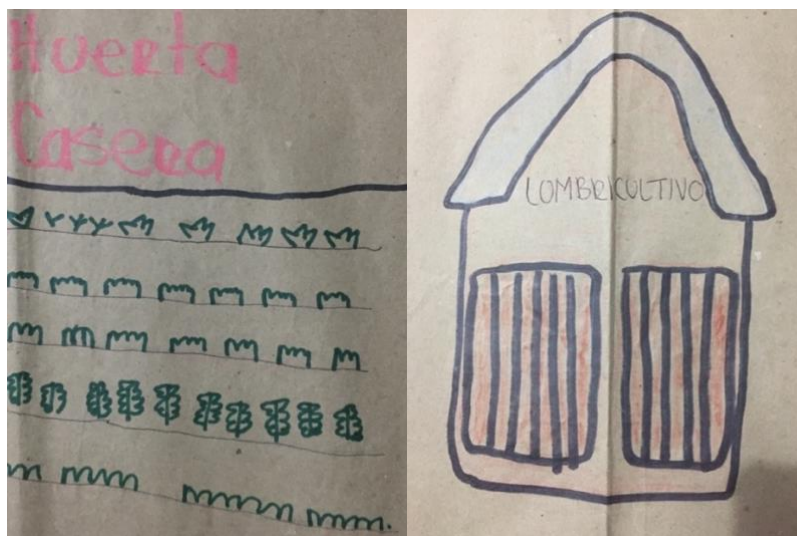 Huerta
Casera
LOMBRICULTIVO